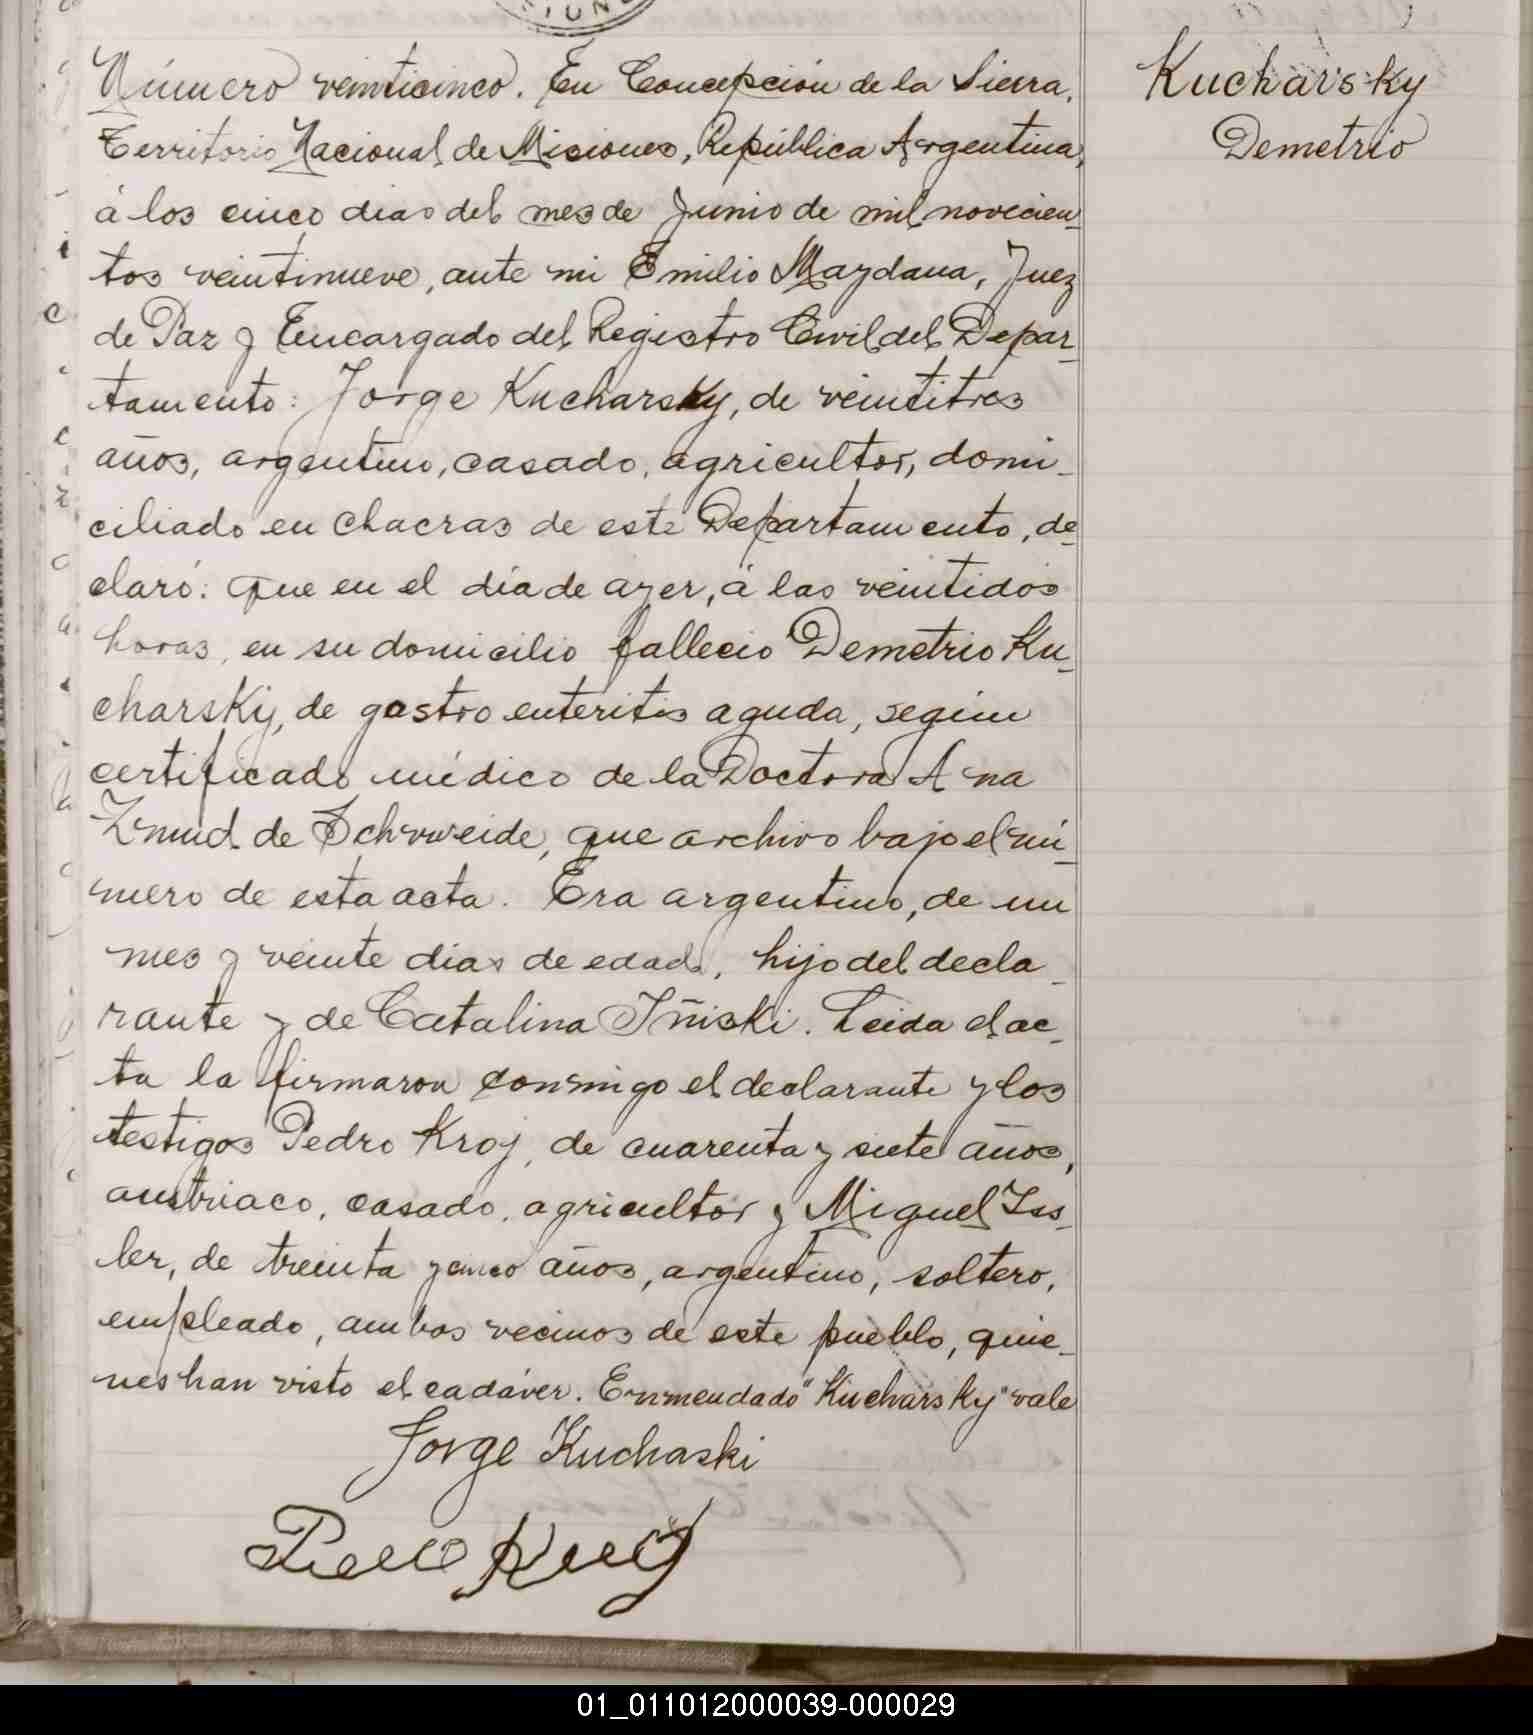 IUN
Número veinticinco. En Concepción de la Sierra,
Kucharsky
Territorio Nacional de Misiones, República Argentina,
Demetrio
á los cinco dias del mes de Junio de mil novecien_
tos veintinueve, ante mi Emilio Maydana, Juez
de Paz y Encargado del Registro Civil del Depar_
tamento: Jorge Kucharsky, de veintitres
años, argentino, casado, agricultor, domi_
ciliado en chacras de este Departamento, de_
claró: que en el día de ayer, á las veintidós
horas, en su domicilio fallecio Demetrio Ku_
charsky, de gastro enteritis aguda, segun
certificado médico de la Doctora Ana
Zmud de Schvweide, que archivo bajo el nú_
mero de esta acta. Era argentino, de un
mes y veinte dias de edad, hijo del decla_
rante y de Catalina Iñiski. Leida el ac_
ta la firmaron conmigo el declarante y los
testigos Pedro Kroj, de cuarenta y siete años,
austriaco, casado, agricultor y Miguel Iss_
ler, de treinta y cinco años, argentino, soltero,
empleado, ambos vecinos de este pueblo, quie_
nes han visto el cadáver. Enmendado "Kucharsky" vale
Jorge Kuchaski
01_011012000039-000029